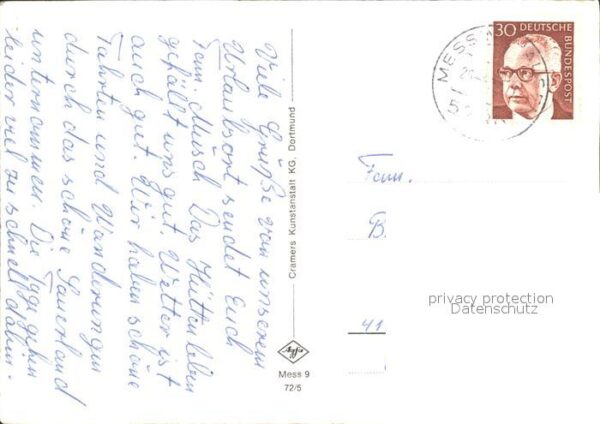 Viele Grüße von unserem
Urlaubsort sendet Euch
Fam. Misch Das Hüttenleben
gefällt uns gut. Wetter ist
auch gut. Wir haben schöne
Fahrten und Wanderungen
durch das schöne Sauerland
unternommen. Die Tage gehen
leider viel zu schnell dahin.
Cramers Kunstanstalt KG, Dortmund
Agfa
Mess 9
72/5
30 DEUTSCHE
BUNDESPOST
MESS
Fam.
B.
41
privacy protection
Datenschutz